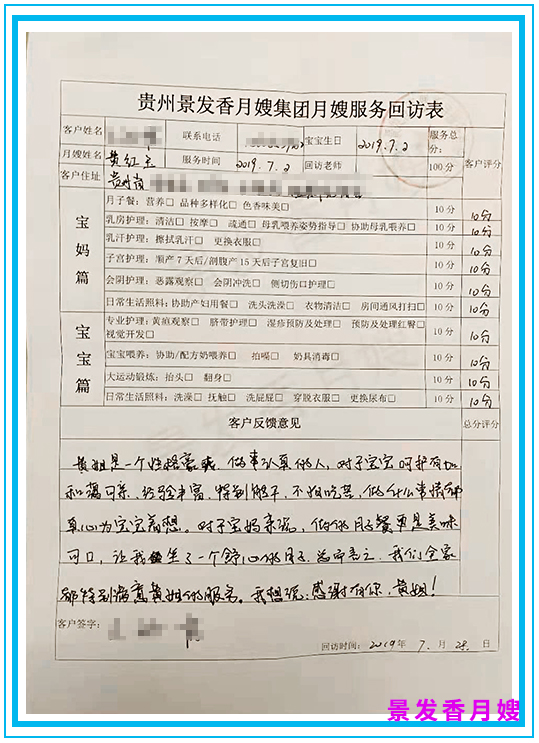 贵州景发香月嫂集团月嫂服务回访表
客户姓名 联系电话 宝宝生日 2019.7.2 服务总分: 客户评分
月嫂姓名 黄红 服务时间 2019.7.2 回访老师 100分
客户住址 贵州省
宝妈篇
月子餐: 营养□ 品种多样化□ 色香味美□ 10分 10分
乳房护理: 清洁□ 按摩□ 疏通□ 母乳喂养姿势指导□ 协助母乳喂养□ 10分 10分
乳汗护理: 擦拭乳汗□ 更换衣服□ 10分 10分
子宫护理: 顺产7天后/剖腹产15天后子宫复旧□ 10分 10分
会阴护理: 恶露观察□ 会阴冲洗□ 侧切伤口护理□ 10分 10分
日常生活照料: 协助产妇用餐□ 洗头洗澡□ 衣物清洁□ 房间通风打扫□ 10分 10分
宝宝篇
专业护理: 黄疸观察□ 脐带护理□ 湿疹预防及处理□ 预防及处理红臀□
视觉开发□ 10分 10分
宝宝喂养: 协助/配方奶喂养□ 拍嗝□ 奶具消毒□ 10分 10分
大运动锻炼: 抬头□ 翻身□ 10分 10分
日常生活照料: 洗澡□ 抚触□ 洗屁屁□ 穿脱衣服□ 更换尿布□ 10分 10分
客户反馈意见 总分评分
黄姐是一个性格豪爽,做事认真的人,对于宝宝呵护有加
和蔼可亲,经验丰富,特别能干,不怕吃苦,做什么事情都
真心为宝宝着想。对于宝妈来说,做的月子餐更是美味
可口,让我坐了一个舒心的月子,总而言之,我们全家
都特别满意黄姐的服务。我想说:感谢有你,黄姐!
客户签字:
回访时间: 2019年 7.月 28.日
景发香月嫂